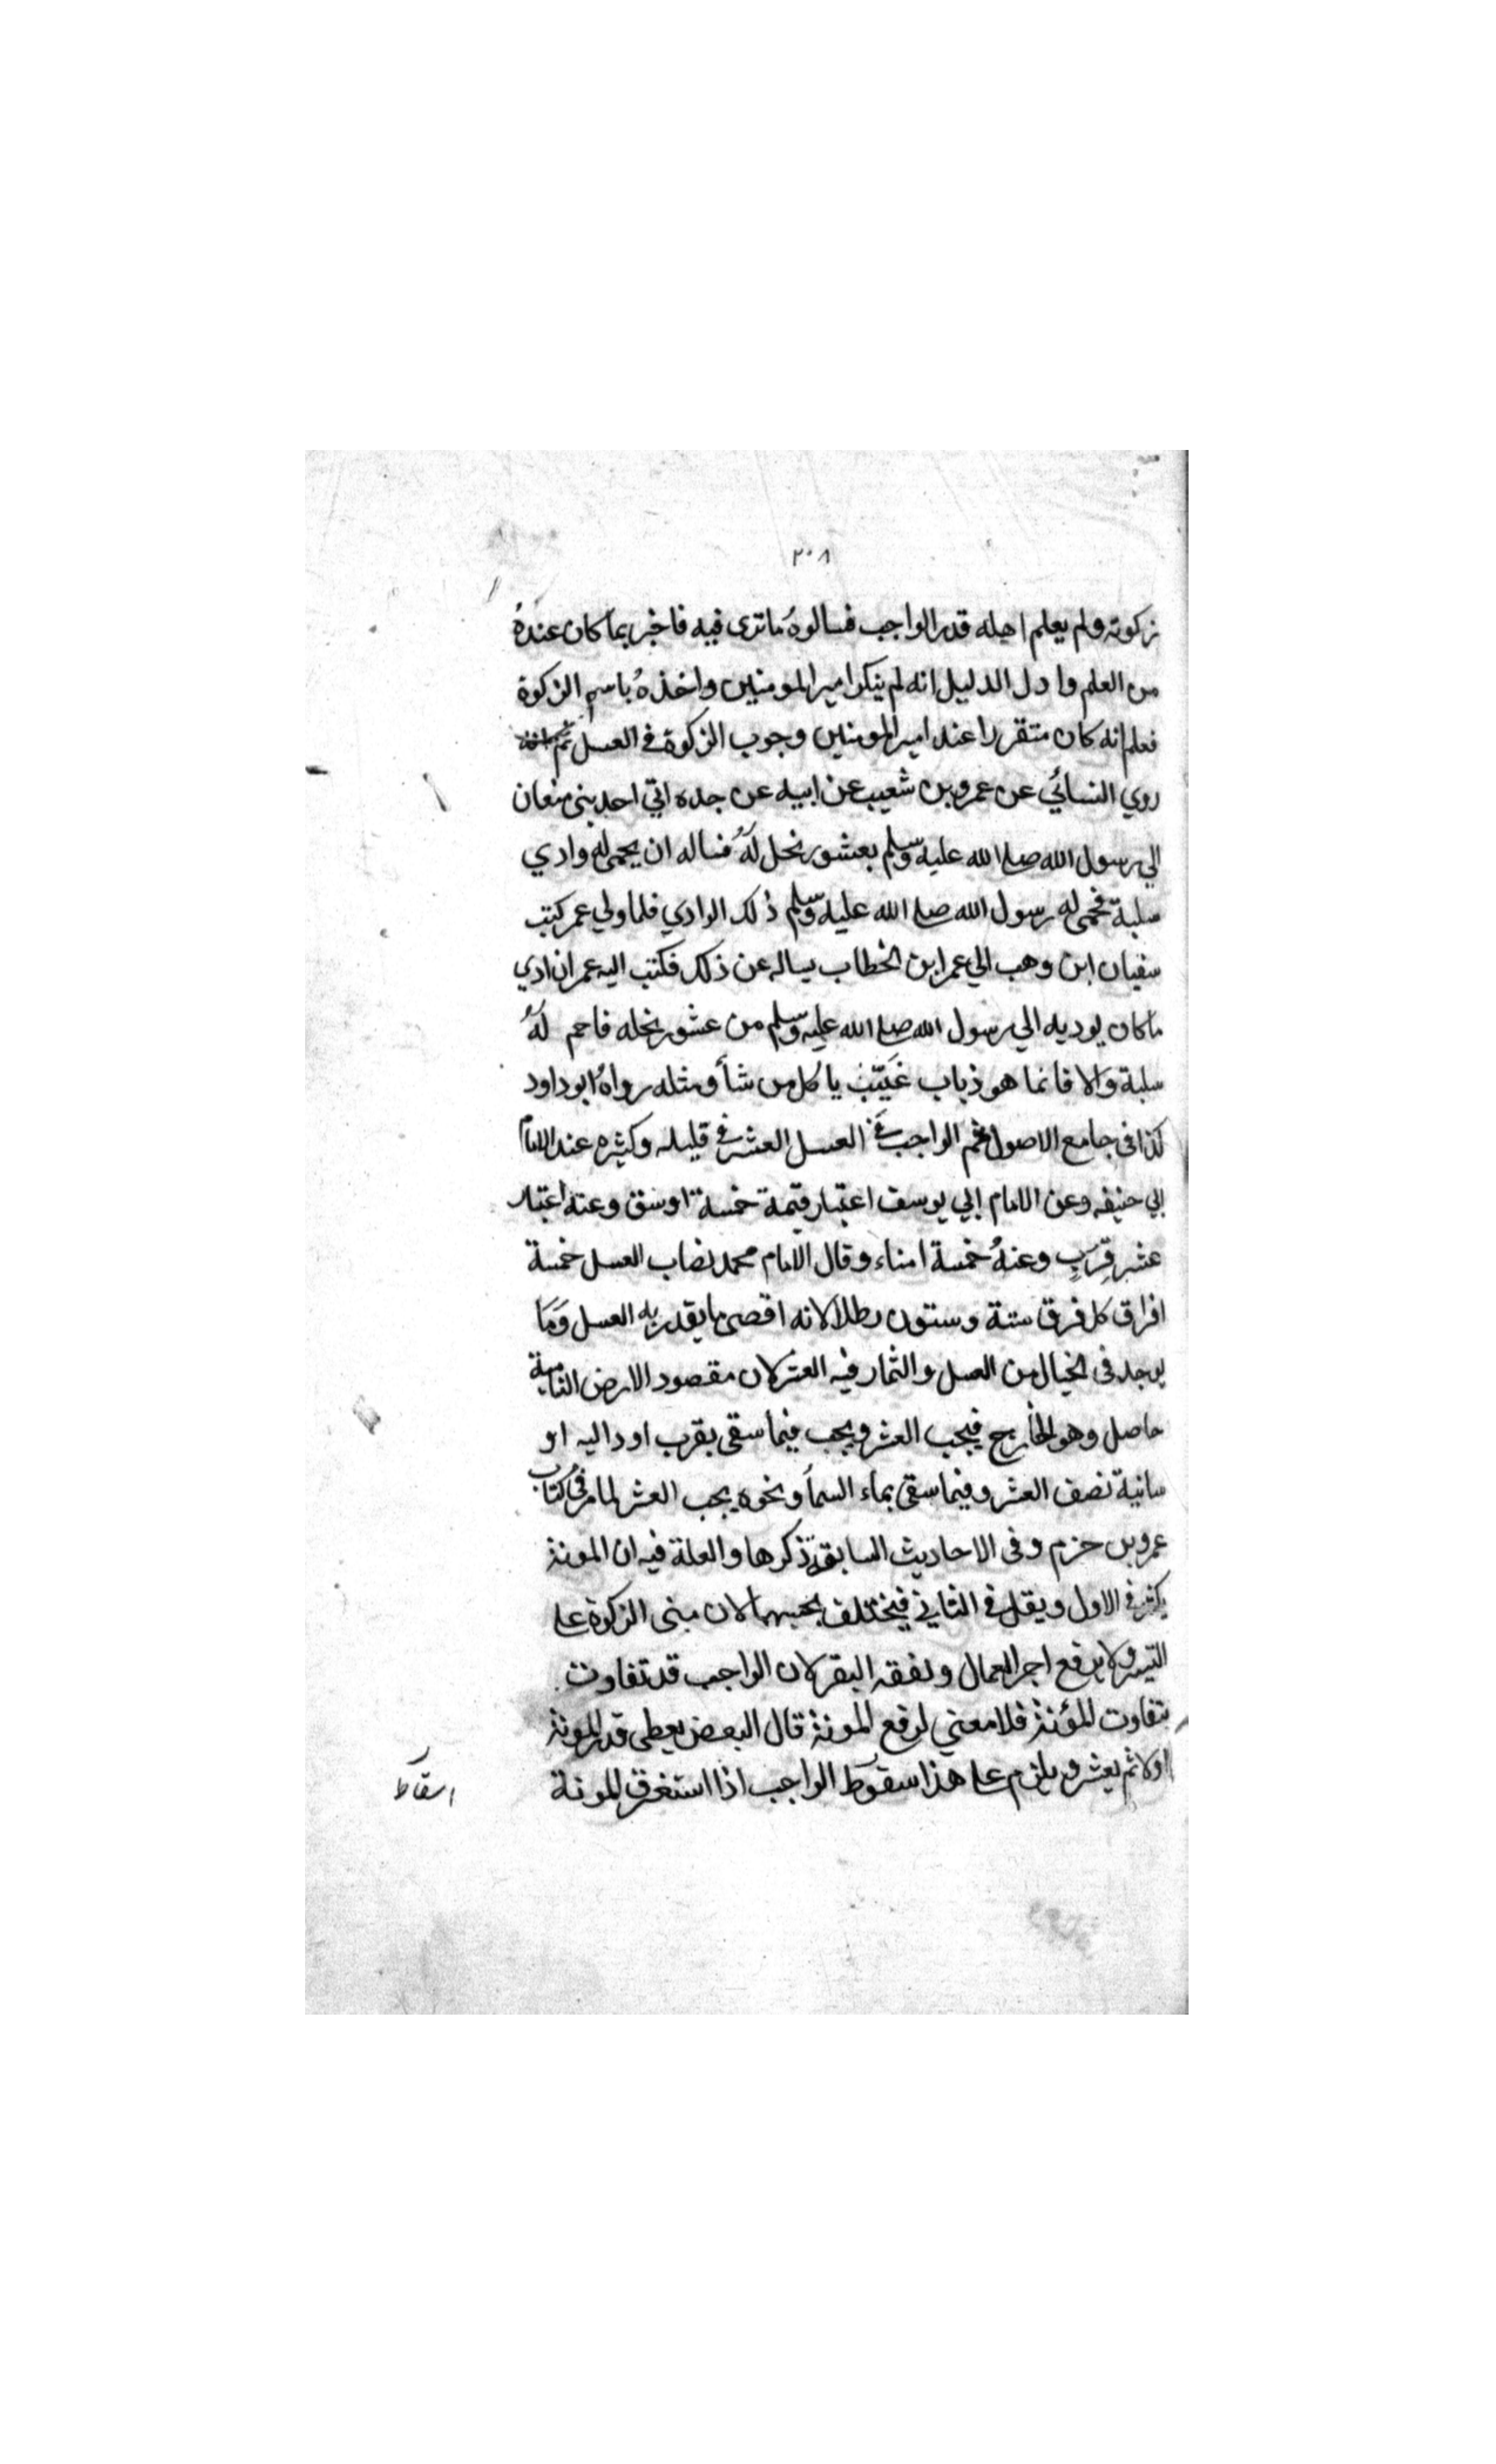 ٢٠٨
زكوته ولم يعلم اهله قدر الواجب فسالوهُ ما ترى فيه فاخبر بما كان عندهُ
من العلم وادل الدليل انه لم ينكر امير المومنين واخذهُ باسم الزكوة
فعلم انه كان متقررا عند امير المومنين وجوب الزكوة في العسل ثم
روي النسائي عن عمرو بن شعيب عن ابيه عن جده اتي احد بني متعان
الي رسول الله صلى الله عليه وسلم بعشور نحل لهُ فساله ان يحمي له وادي
سلبة فحمى له رسول الله صلى الله عليه وسلم ذلك الوادي فلما ولي عمر كتب
سفيان ابن وهب الي عمر ابن الخطاب يساله عن ذلك فكتب اليه عمر ان ادي
ما كان يوديه الي رسول الله صلى الله عليه وسلم من عشور نحله فاحم لهُ
سلبة والا فانما هو ذباب غيث ياكل من شأ ومثله رواهُ ابو داود
كذا في جامع الاصول ثم الواجب في العسل العشر في قليله وكثيره عند الامام
ابي حنيفه وعن الامام ابي يوسف اعتبار قيمة خمسة اوسق وعنه اعتبار
عشر قِرَبٍ وعنهُ خمسة امناء وقال الامام محمد نصاب العسل خمسة
افراق كل فرق ستة وستون رطلا لانه اقصى ما يقدر به العسل وَمَا
يوجد في الجبال من العسل والثمار فيه العشر لان مقصود الارض النامية
حاصل وهو الخارج فيجب العشر ويجب فيما سقى بقرب او داليه او
سانية نصف العشر وفيما سقى بماء السمأ ونحوه يجب العشر لما مر في كتاب
عمرو بن حزم وفى الاحاديث السابقة ذكرها والعلة فيه ان المونة
يكثر في الاول ويقل في الثاني فيختلف بحسبهما لان مبنى الزكوة على
التيسر ولا يرفع اجر العمال ونفقه البقر لان الواجب قد تفاوت
بتفاوت المؤنة فلا معني لرفع المونة قال البعض يعطى قدر المونة
اولا ثم يعشر ويلزم على هذا سقوط الواجب اذا استغرق المونة
اسقاط